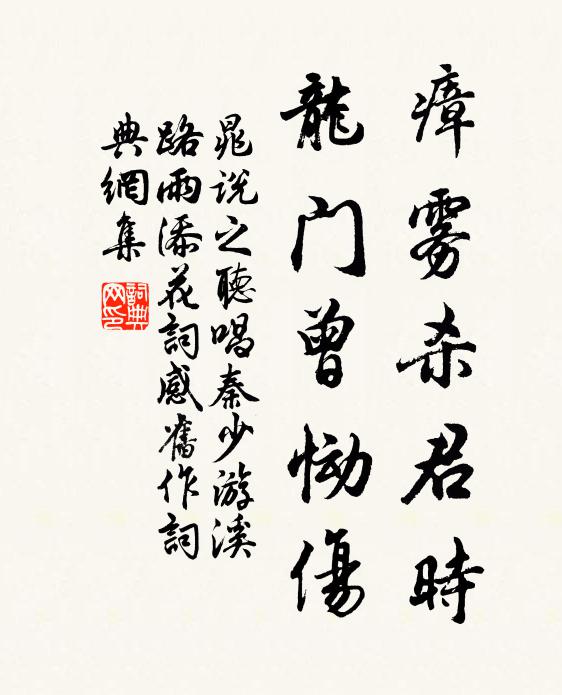 瘴雾杀君时
龍门曾恸傷
晁说之聽唱秦少游溪
路雨添花詞感舊作詞
典網集
詞典
网印